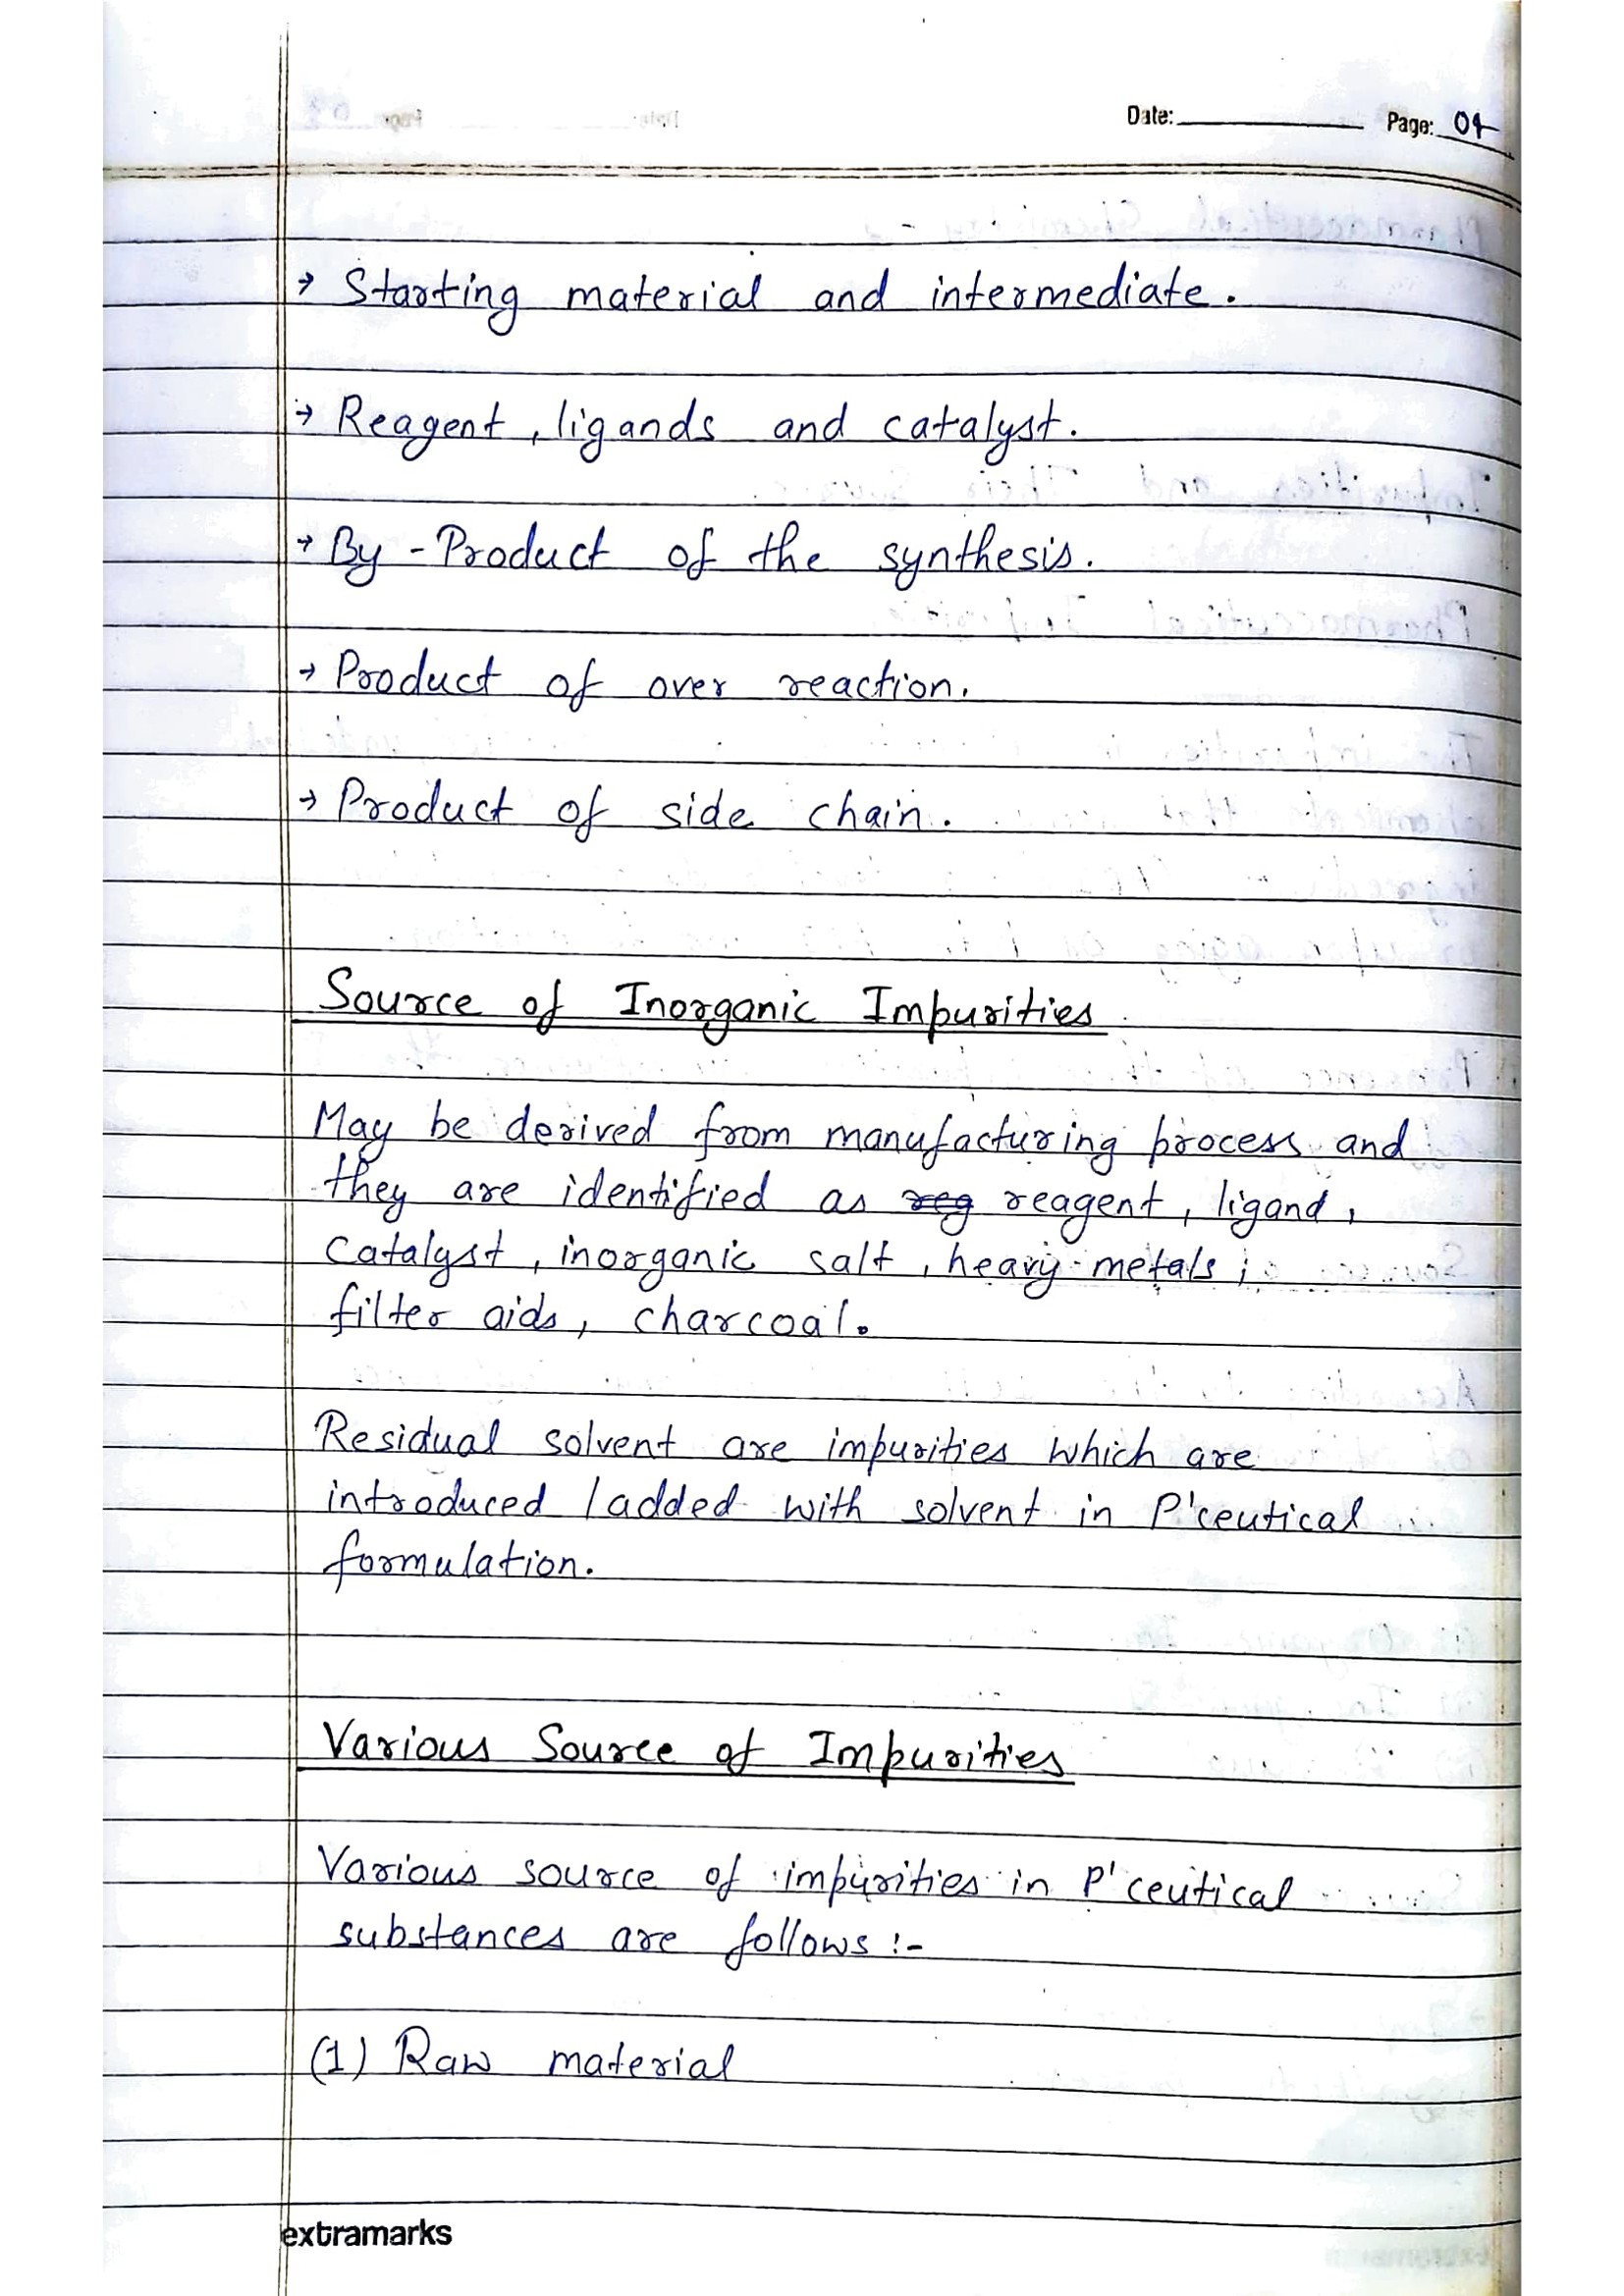 Date: Page: 04
→ Starting material and intermediate.
→ Reagent, ligands and catalyst.
→ By-Product of the synthesis.
→ Product of over reaction.
→ Product of side chain.
Source of Inorganic Impurities
May be derived from manufacturing process and
they are identified as reg reagent, ligand,
catalyst, inorganic salt, heavy metals,
filter aids, charcoal.
Residual solvent are impurities which are
introduced / added with solvent in P'ceutical
formulation.
Various Source of Impurities
Various source of impurities in P'ceutical
substances are follows :-
(1) Raw material
extramarks